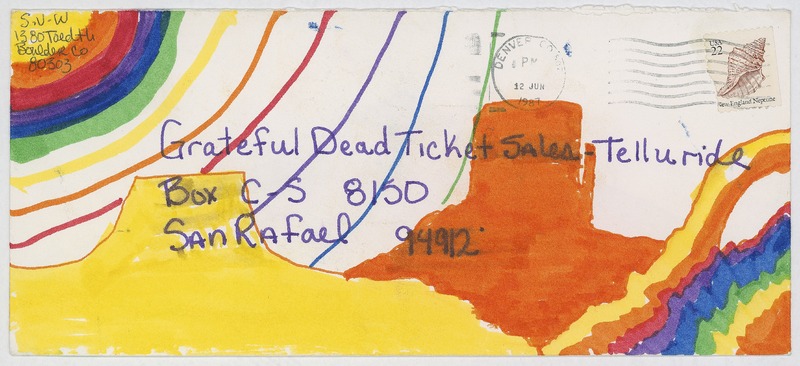 S.V-W
1380 Toedtli
Boulder Co
80303
DENVER CO
PM
12 JUN
1987
USA
22
New England Neptune
Grateful Dead Ticket Sales - Telluride
Box C-S 8150
San Rafael 94912